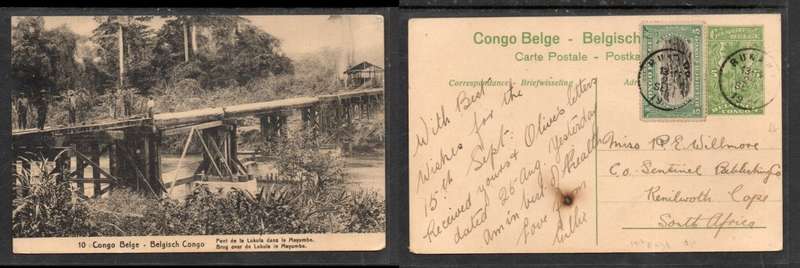 10 Congo Belge - Belgisch Congo
Pont de la Lukula dans le Mayumbe.
Brug over de Lukula in Mayumbe.
Congo Belge - Belgis
Carte Postale - Postka
Correspondance - Briefwisseling
With Best
Wishes for the
15th Sept.
Received yours & Olive's letters
dated 26 Aug. Yesterday
Am in best of Health
Love from
Miss R. E. Willmore
C.o. Sentinel Publishing Co
Kenilworth Cape
South Africa